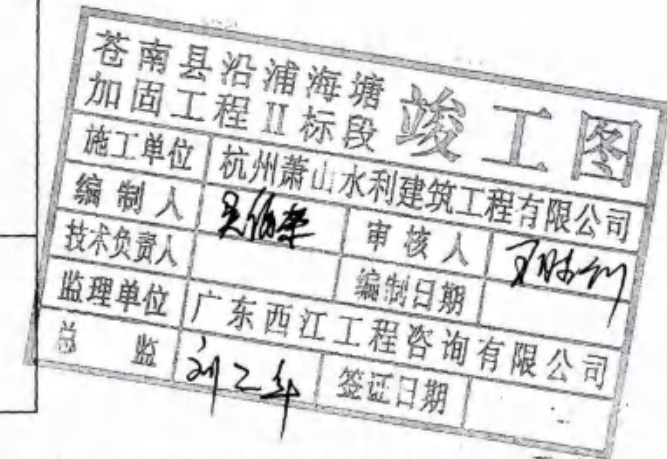 苍南县沿浦海塘
加固工程II标段 竣工图
施工单位 杭州萧山水利建筑工程有限公司
编制人 审核人
技术负责人 编制日期
监理单位 广东西江工程咨询有限公司
总监 签证日期